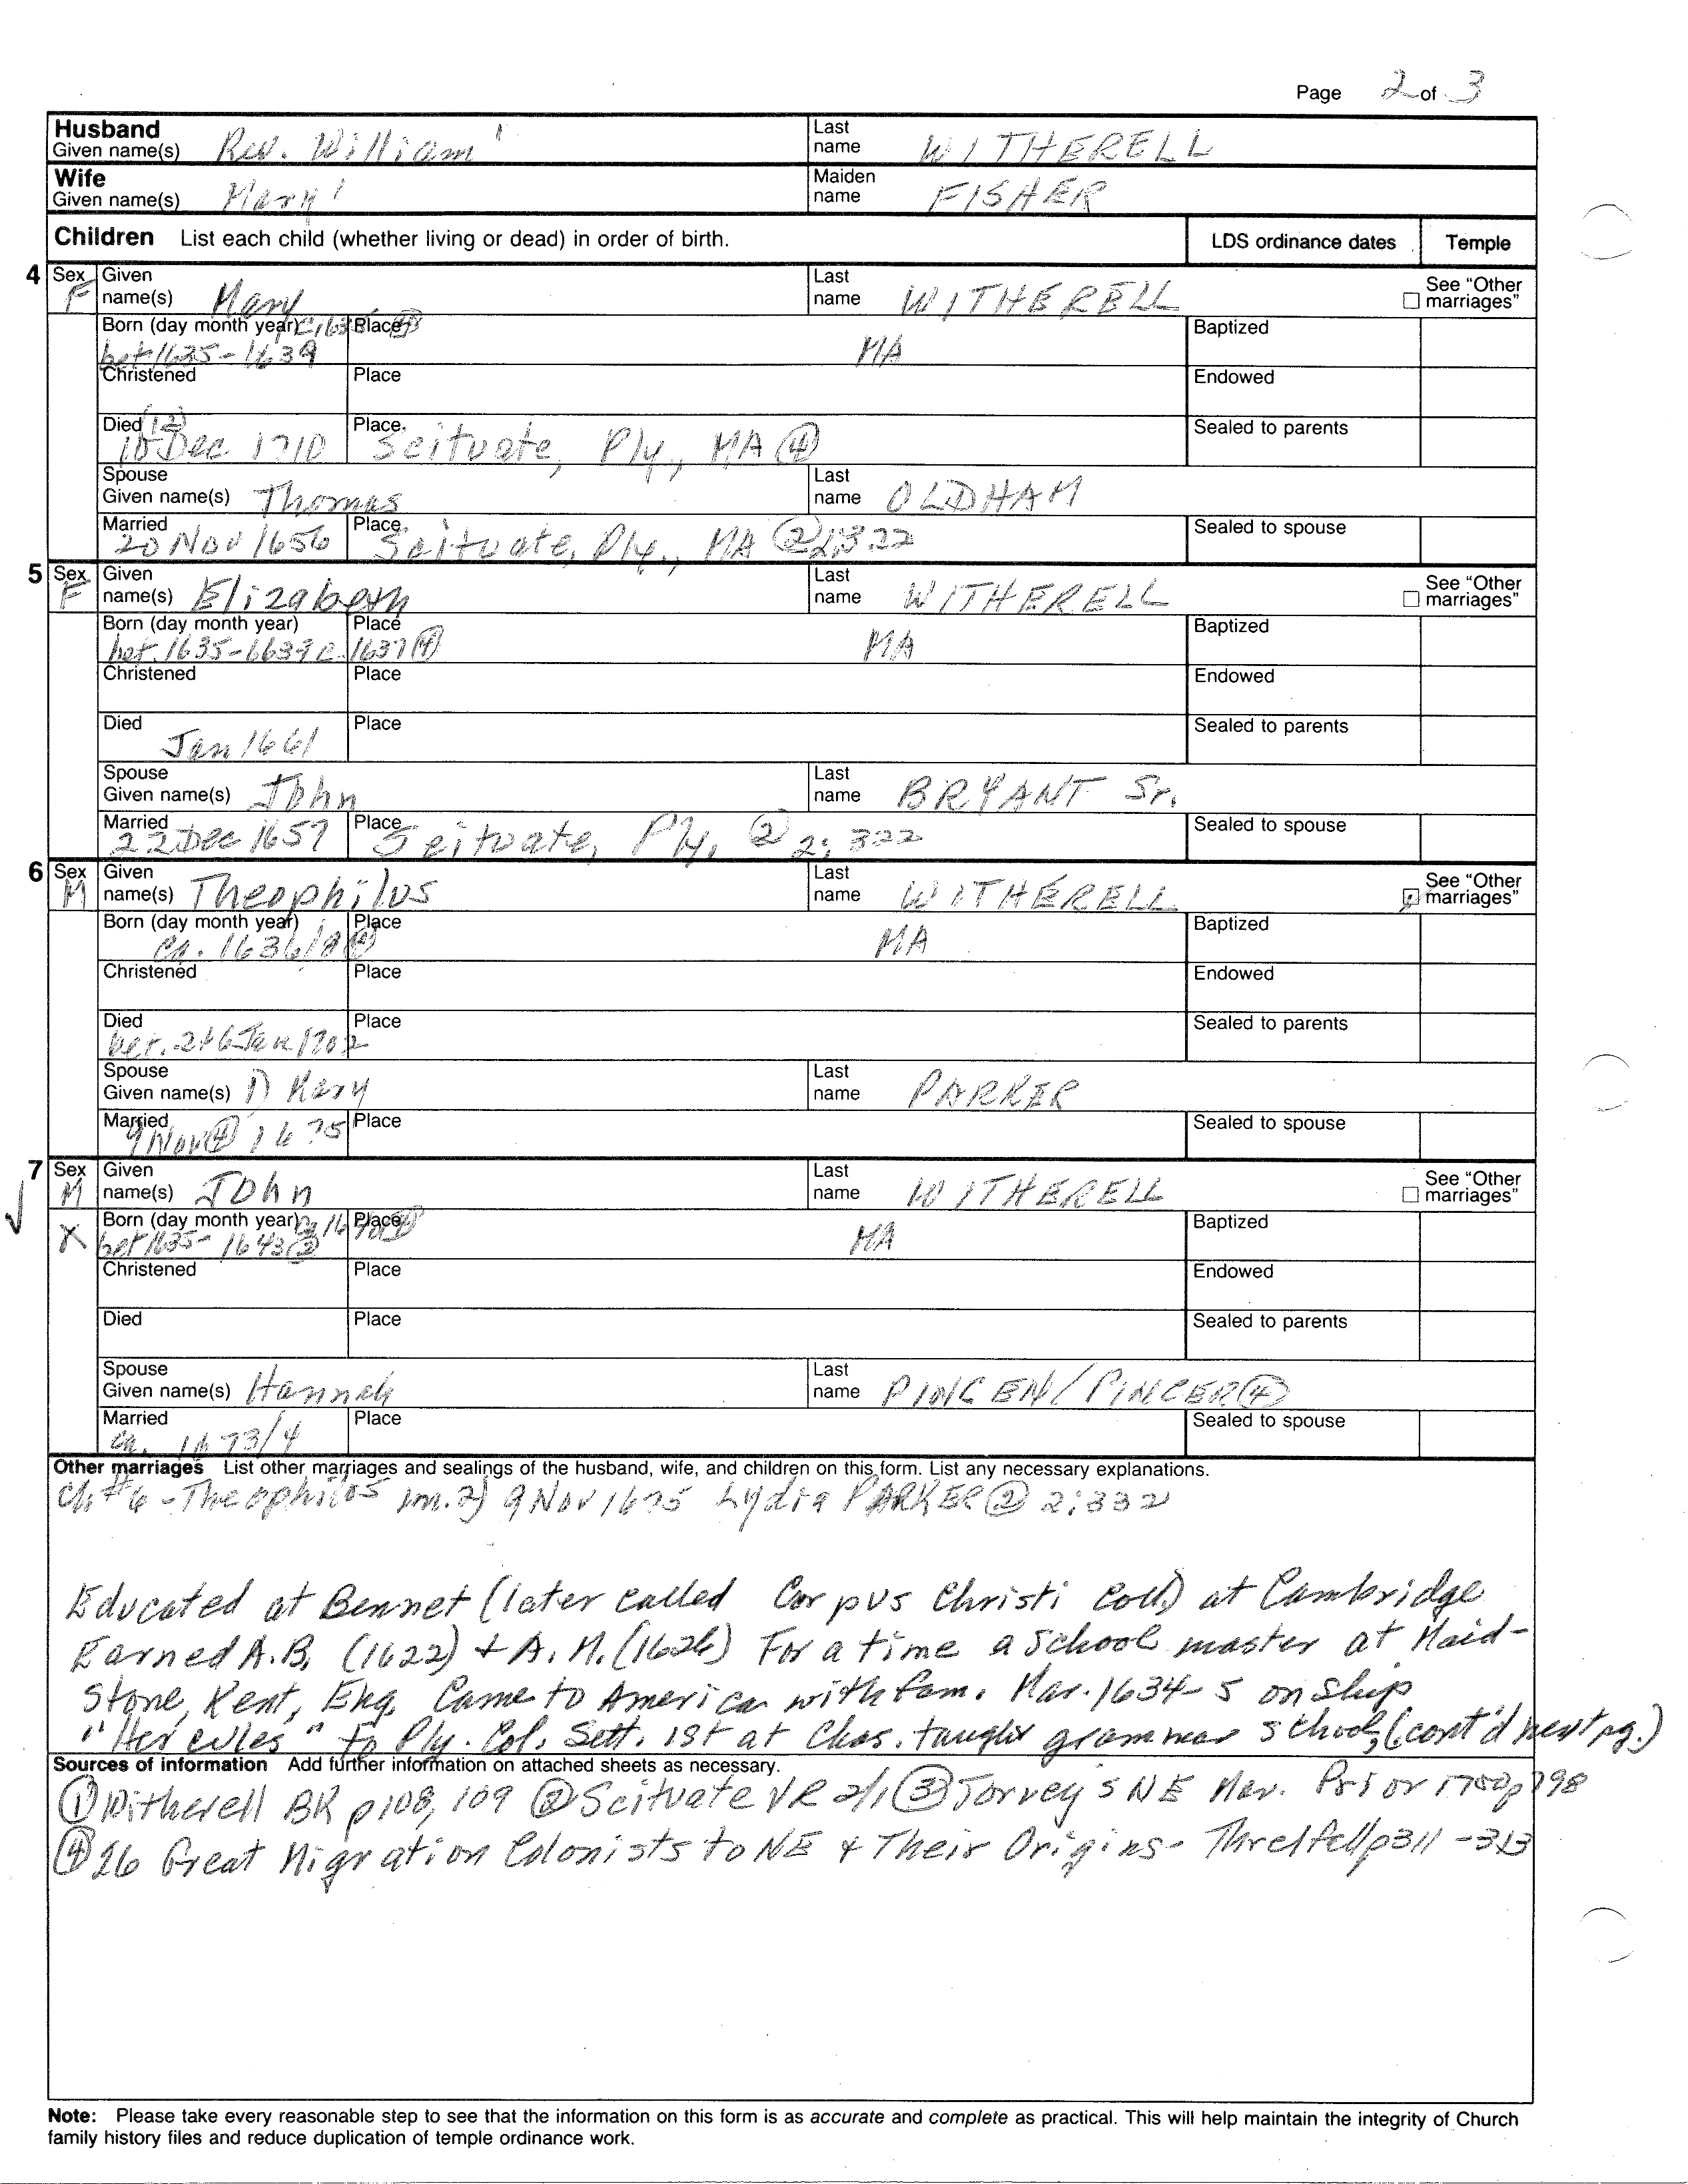 Page 2 of 3
Husband
Given name(s) Rev. William 1
Last name WITHERELL
Wife
Given name(s) Mary 1
Maiden name FISHER
Children List each child (whether living or dead) in order of birth. LDS ordinance dates Temple
4 Sex F Given name(s) Mary Last name WITHERELL See "Other marriages"
Born (day month year) bet 1635-1639 Place MA Baptized
Christened Place Endowed
Died Dec 1710 Place Scituate, Ply., MA ④ Sealed to parents
Spouse Given name(s) Thomas Last name OLDHAM
Married 20 Nov 1656 Place Scituate, Ply., MA ② 2:322 Sealed to spouse
5 Sex F Given name(s) Elizabeth Last name WITHERELL See "Other marriages"
Born (day month year) bet. 1635- c. 1637 ④ Place MA Baptized
Christened Place Endowed
Died Jan 1661 Place Sealed to parents
Spouse Given name(s) John Last name BRYANT Sr.
Married 22 Dec 1657 Place Scituate, Ply, ② 2:322 Sealed to spouse
6 Sex M Given name(s) Theophilus Last name WITHERELL See "Other marriages"
Born (day month year) ca. 1636/8 ④ Place MA Baptized
Christened Place Endowed
Died bet. 2+6 Jan 1702 Place Sealed to parents
Spouse Given name(s) 1) Mary Last name PARKER
Married 9 Nov ④ 1675 Place Sealed to spouse
7 Sex M Given name(s) John Last name WITHERELL See "Other marriages"
X Born (day month year) bet 1635-1643 ② Place MA Baptized
Christened Place Endowed
Died Place Sealed to parents
Spouse Given name(s) Hannah Last name PINCEN/PINCER ④
Married ca. 1673/4 Place Sealed to spouse
Other marriages List other marriages and sealings of the husband, wife, and children on this form. List any necessary explanations.
Ch #6 - Theophilos m. 2) 9 Nov 1675 Lydia PARKER ② 2:332
Educated at Bennet (later called Corpus Christi Coll.) at Cambridge
Earned A.B. (1622) + A.M. (1626) For a time a school master at Maid-
stone, Kent, Eng. Came to America with fam. Mar. 1634-5 on ship
"Hercules" to Ply. Col. Sett. 1st at Chas. taught grammar school; (cont'd next pg.)
Sources of information Add further information on attached sheets as necessary.
① Witherell BK p108, 109 ② Scituate VR 2/1 ③ Torrey's NE Mar. Prior 1700 p798
④ 26 Great Migration Colonists to NE & Their Origins - Threlfall p311-313
Note: Please take every reasonable step to see that the information on this form is as accurate and complete as practical. This will help maintain the integrity of Church
family history files and reduce duplication of temple ordinance work.